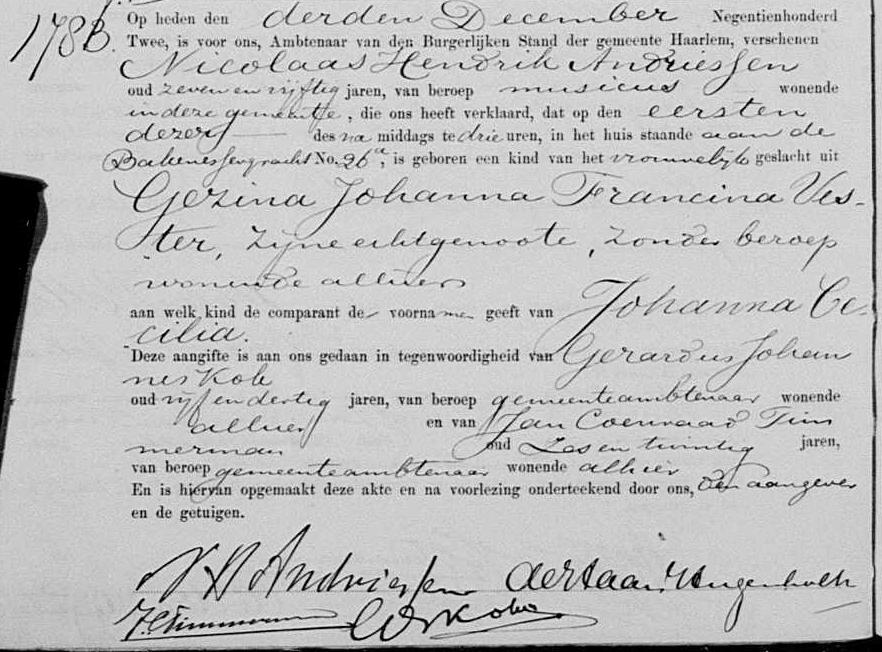 1783.
Op heden den derden December Negentienhonderd
Twee, is voor ons, Ambtenaar van den Burgerlijken Stand der gemeente Haarlem, verschenen
Nicolaas Hendrik Andriessen
oud zeven en vijftig jaren, van beroep musicus wonende
in deze gemeente, die ons heeft verklaard, dat op den eersten
dezer des na middags te drie uren, in het huis staande aan de
Bakenessergracht No. 26a, is geboren een kind van het vrouwelijk geslacht uit
Gezina Johanna Francina Ves-
ter, zijne echtgenoote, zonder beroep
wonende alhier
aan welk kind de comparant de voornamen geeft van Johanna Ce-
cilia.
Deze aangifte is aan ons gedaan in tegenwoordigheid van Gerardus Johan
nes Kok
oud vijf en dertig jaren, van beroep gemeenteambtenaar wonende
alhier en van Jan Coenraad Tim
merman oud Zes en twintig jaren,
van beroep gemeenteambtenaar wonende alhier
En is hiervan opgemaakt deze akte en na voorlezing onderteekend door ons, den aangever
en de getuigen.
N H Andriessen
JC Timmerman GJ Kok